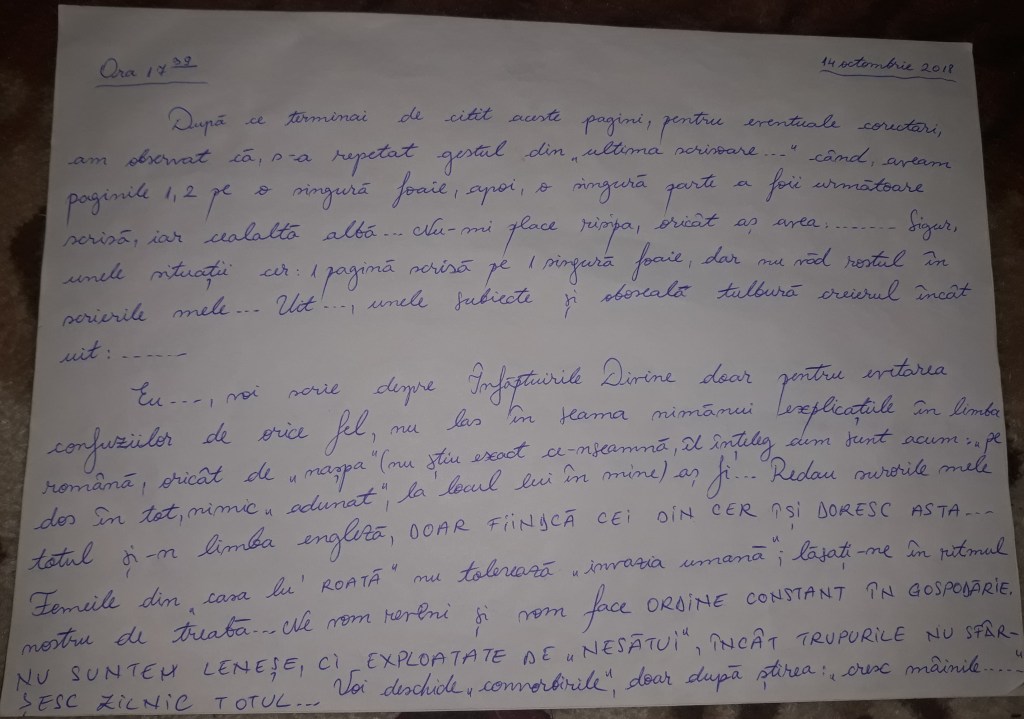 Ora 17 39
14 octombrie 2018
După ce terminai de citit aceste pagini, pentru eventuale corectări,
am observat că, s-a repetat gestul din „ultima scrisoare..." când, aveam
paginile 1, 2 pe o singură foaie, apoi, o singură parte a foii următoare
scrisă, iar cealaltă albă... Nu-mi place risipa, oricât aș avea......... Sigur,
unele situații cer: 1 pagină scrisă pe 1 singură foaie, dar nu văd rostul în
scrierile mele... Uit..., unele subiecte și oboseală tulbură creierul încât
uit: ......
Eu...., voi scrie despre Înfăptuirile Divine doar pentru evitarea
confuziilor de orice fel, nu las în seama nimănui explicațiile în limba
română, oricât de „nașpa" (nu știu exact ce-nseamnă, îl înțeleg cum sunt acum: „pe
dos în tot, nimic „adunat", la locul lui în mine) aș fi... Redau surorile mele
totul și-n limba engleză, DOAR FIINDCĂ CEI DIN CER ÎȘI DORESC ASTA...
Femeile din „casa lu' ROATĂ" nu tolerează „invazia umană"; lăsați-ne în ritmul
nostru de treabă... Ne vom reveni și vom face ORDINE CONSTANT ÎN GOSPODĂRIE.
NU SUNTEM LENEȘE, CI EXPLOATATE DE „NESĂTUI", ÎNCÂT TRUPURILE NU SFÂR-
ȘESC ZILNIC TOTUL... Voi deschide „convorbirile", doar după știrea: „cresc mâinile....."